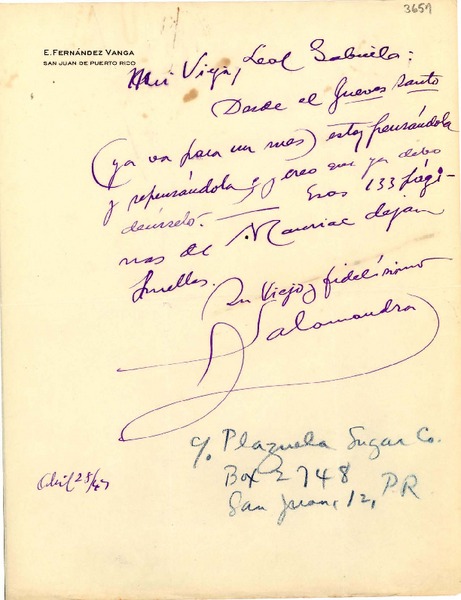 3657
E. FERNÁNDEZ VANGA
SAN JUAN DE PUERTO RICO
Mi Vieja, Leal Gabriela:
Desde el Jueves Santo
(ya va para un mes) estoy pensándola
y repensándola y creo que ya debo
decírselo. — Esas 133 pági-
nas de Mauriac dejan
huellas.
Su Viejo y fidelísimo
Salomandra
c/o Plazuela Sugar Co.
Box 2748
San Juan, 12, P.R.
Abril 25/47